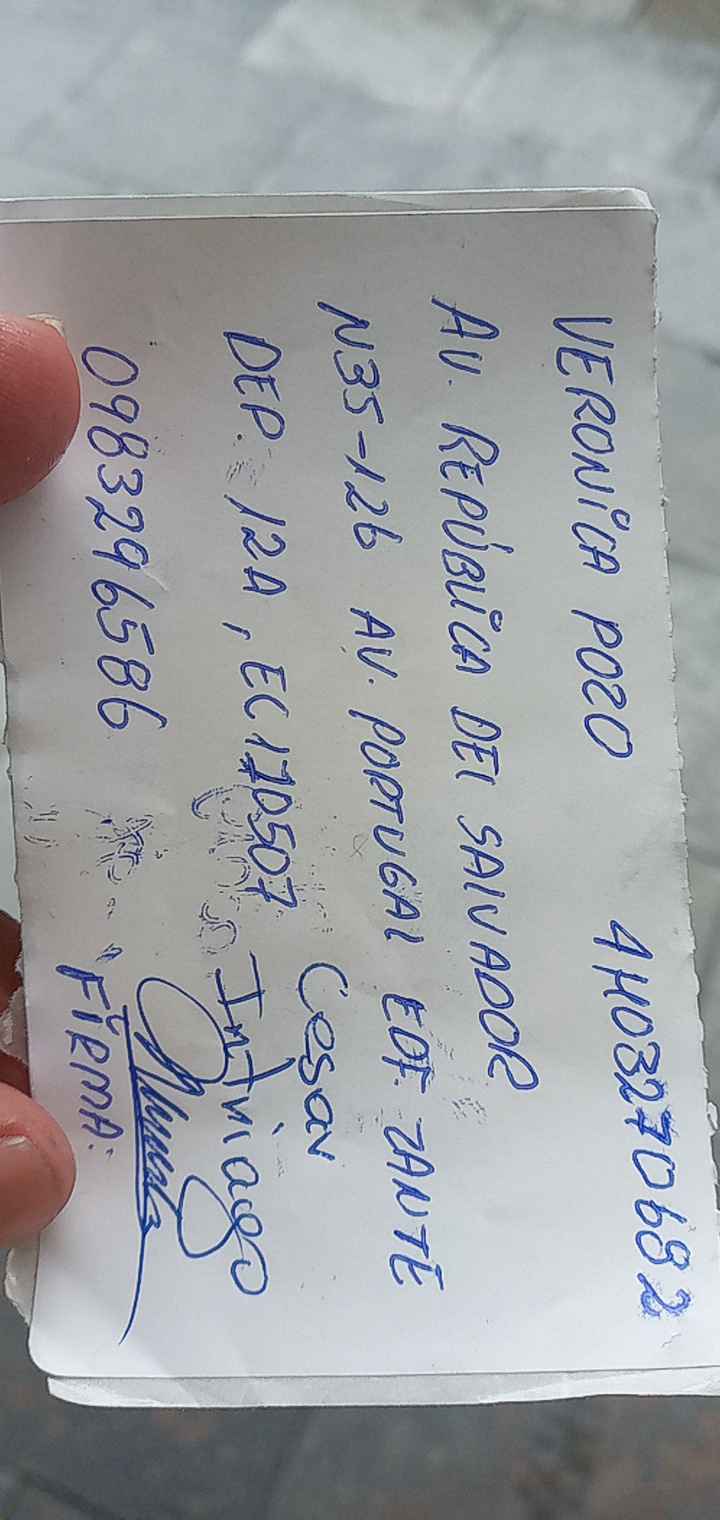 VERONICA POZO 4H03270682
AV. REPÚBLICA DEL SALVADOR
N35-126 AV. PORTUGAL EDF. ZANTE
DEP. 12A, EC170507
Cesar
Intriago
0983296586
FIRMA: